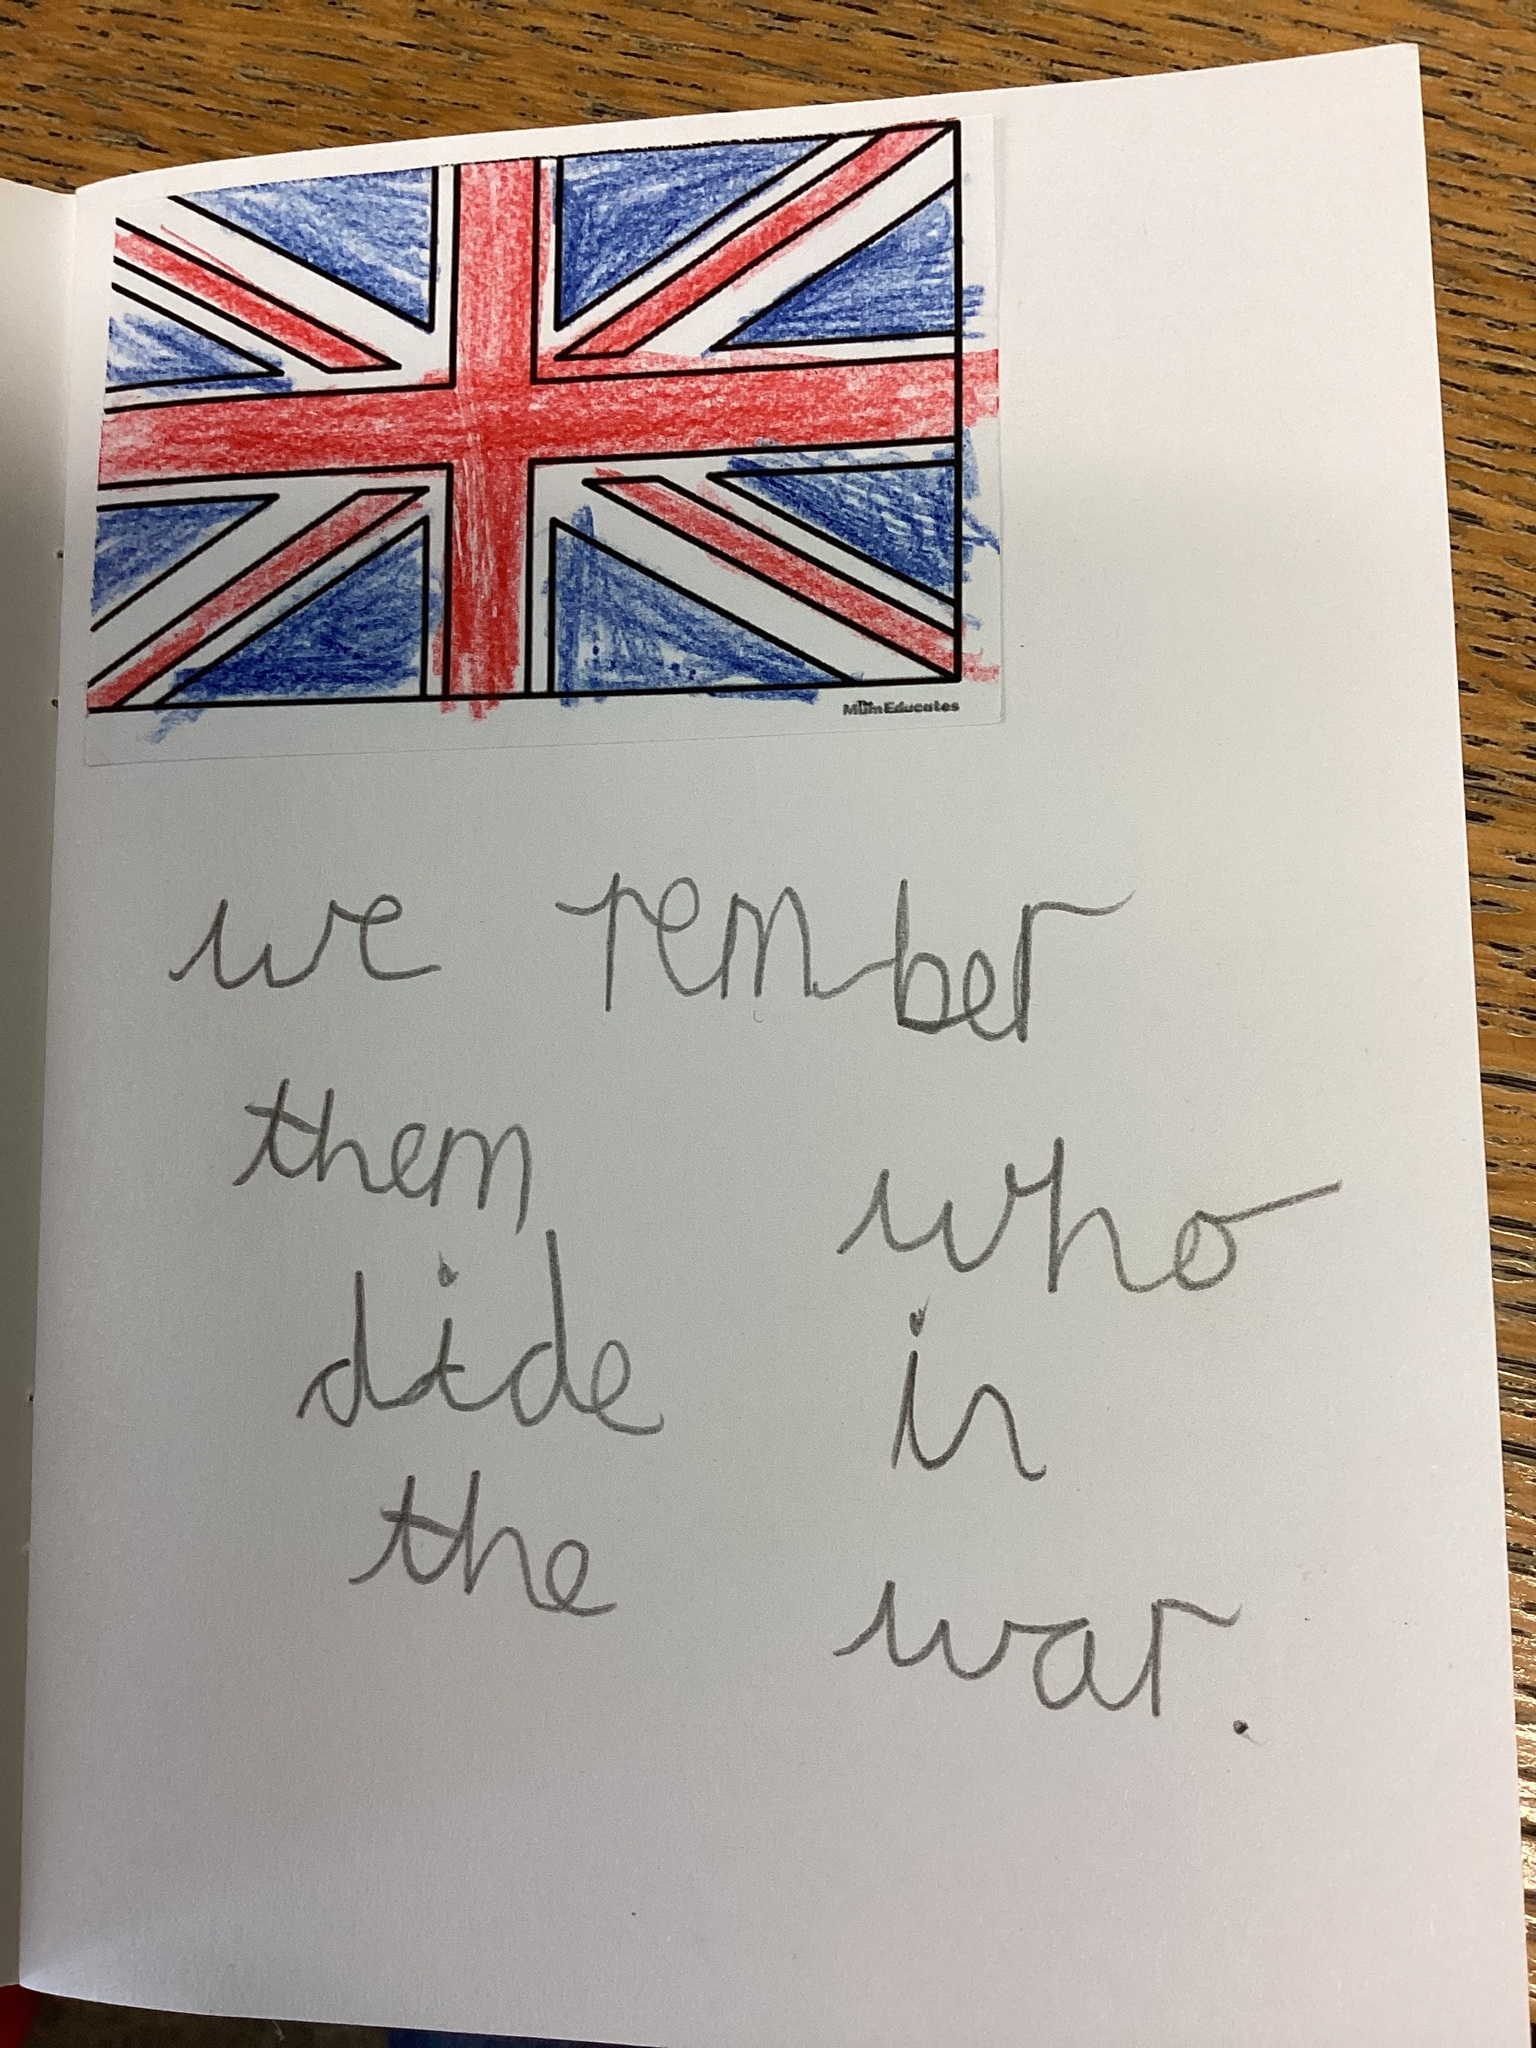 The
MumEducates
we rember
them who
dide in
the war.